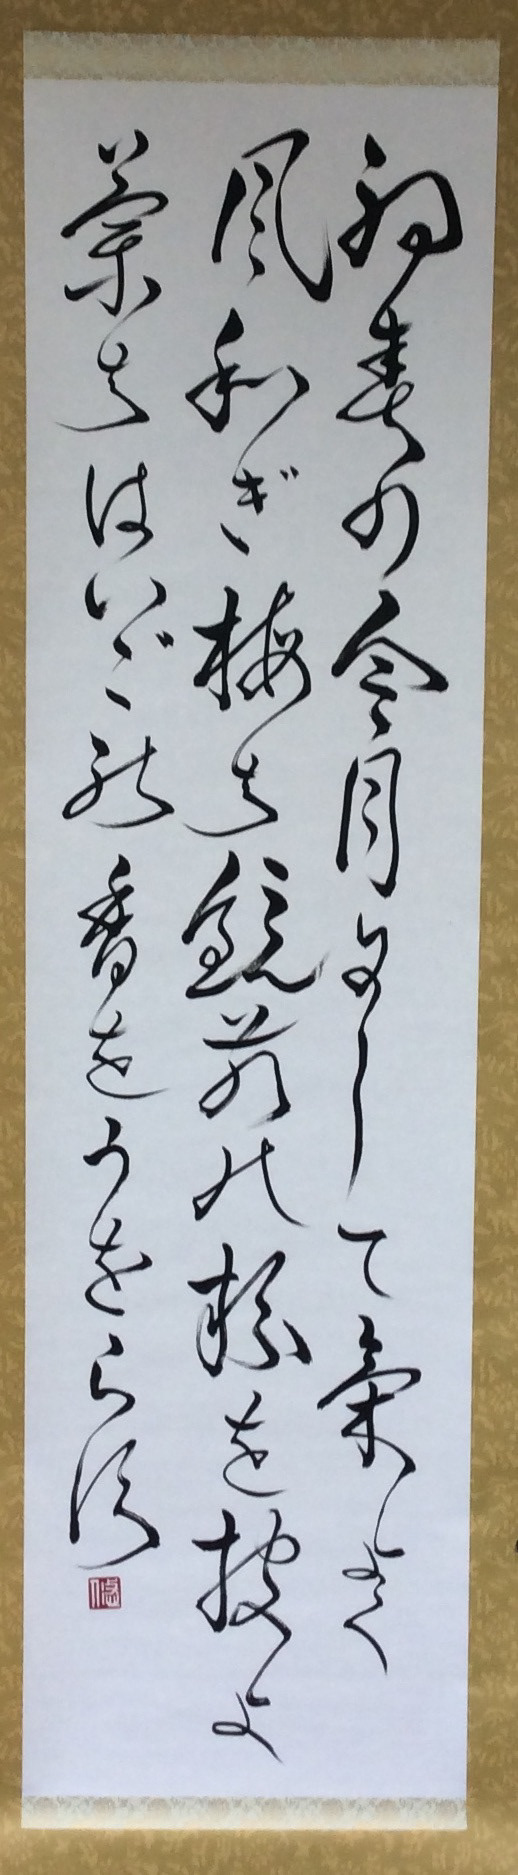 初春の令月にして氣よく
風和ぎ梅は鏡前の粉を披き
蘭ははいごの香をかをらす